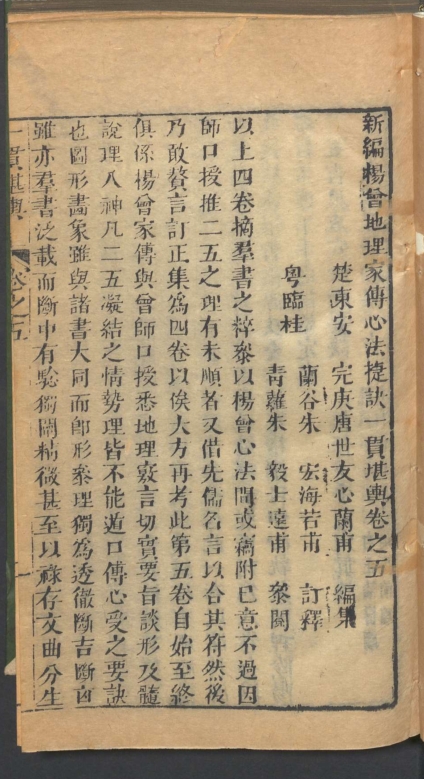 新編楊曾地理家傳心法捷訣一貫堪輿卷之五
楚東安　完庚唐世友心蘭甫　編集
粤臨桂　蘭谷朱　宏海若甫　訂釋
青蘿朱　毅士遠甫　叅閱
以上四卷摘羣書之粹叅以楊曾心法間或竊附已意不過因
師口授推二五之理有未順者又借先儒名言以合其符然後
乃敢贅言訂正集爲四卷以俟大方再考此第五卷自始至終
俱係楊曾家傳與曾師口授悉地理竅言切實要旨談形及髓
說理入神凡二五凝結之情勢理皆不能逭口傳心受之要訣
也圖形畵象雖與諸書大同而郎形叅理獨爲透徹斷吉斷凶
雖亦羣書泛載而斷中有騐獨闡精微甚至以祿存文曲分生
一貫堪輿　卷之五